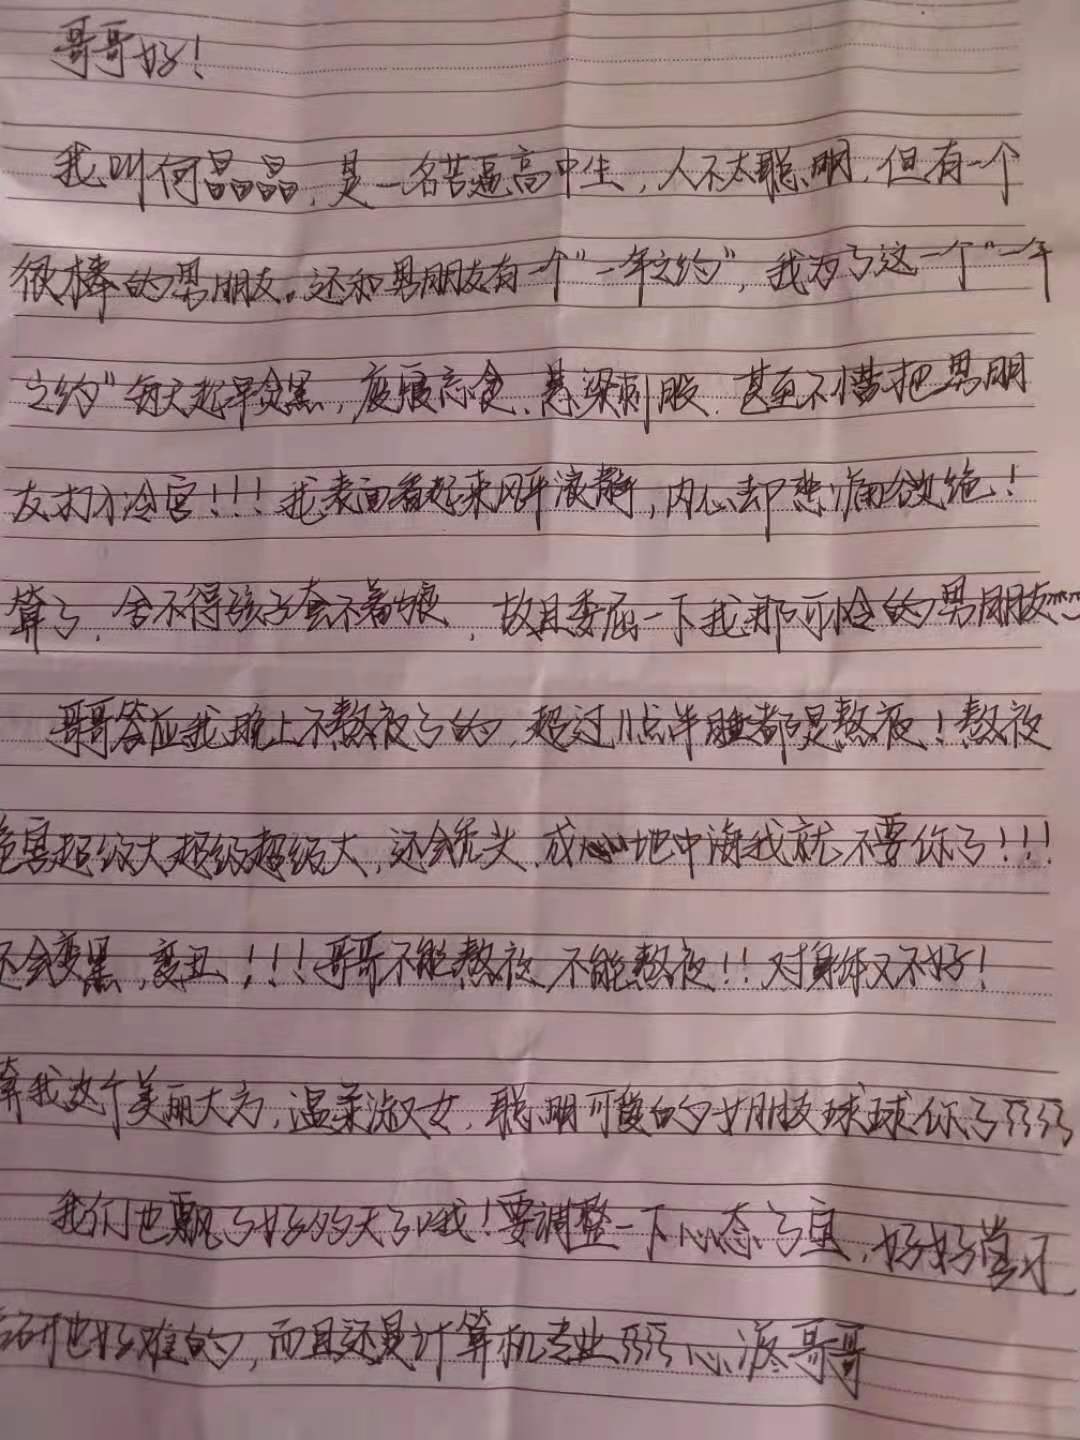 哥哥好！
我叫何晶晶，是一名苦逼高中生，人不太聪明，但有一个
很棒的男朋友。还和男朋友有一个“一年之约”，我为了这一个“一年
之约”每天起早贪黑，废寝忘食、悬梁刺股．甚至不惜把男朋
友打入冷宫！！！我表面看起来风平浪静，内心却悲痛欲绝！
算了，舍不得孩子套不着狼，故且委屈一下我那可怜的男朋友
哥哥答应我晚上不熬夜了的，超过11点半睡都是熬夜！熬夜
危害超级大超级超级大，还会秃头，成地中海我就不要你了！！！
还会变黑，变丑！！！哥哥不能熬夜不能熬夜！！对身体又不好！
算我这个美丽大方，温柔淑女，聪明可爱的女朋友球球你了
我们也飘了好多天了哦！要调整一下心态了宝，好好学习
考研也好难的，而且还是计算机专业 心疼哥哥